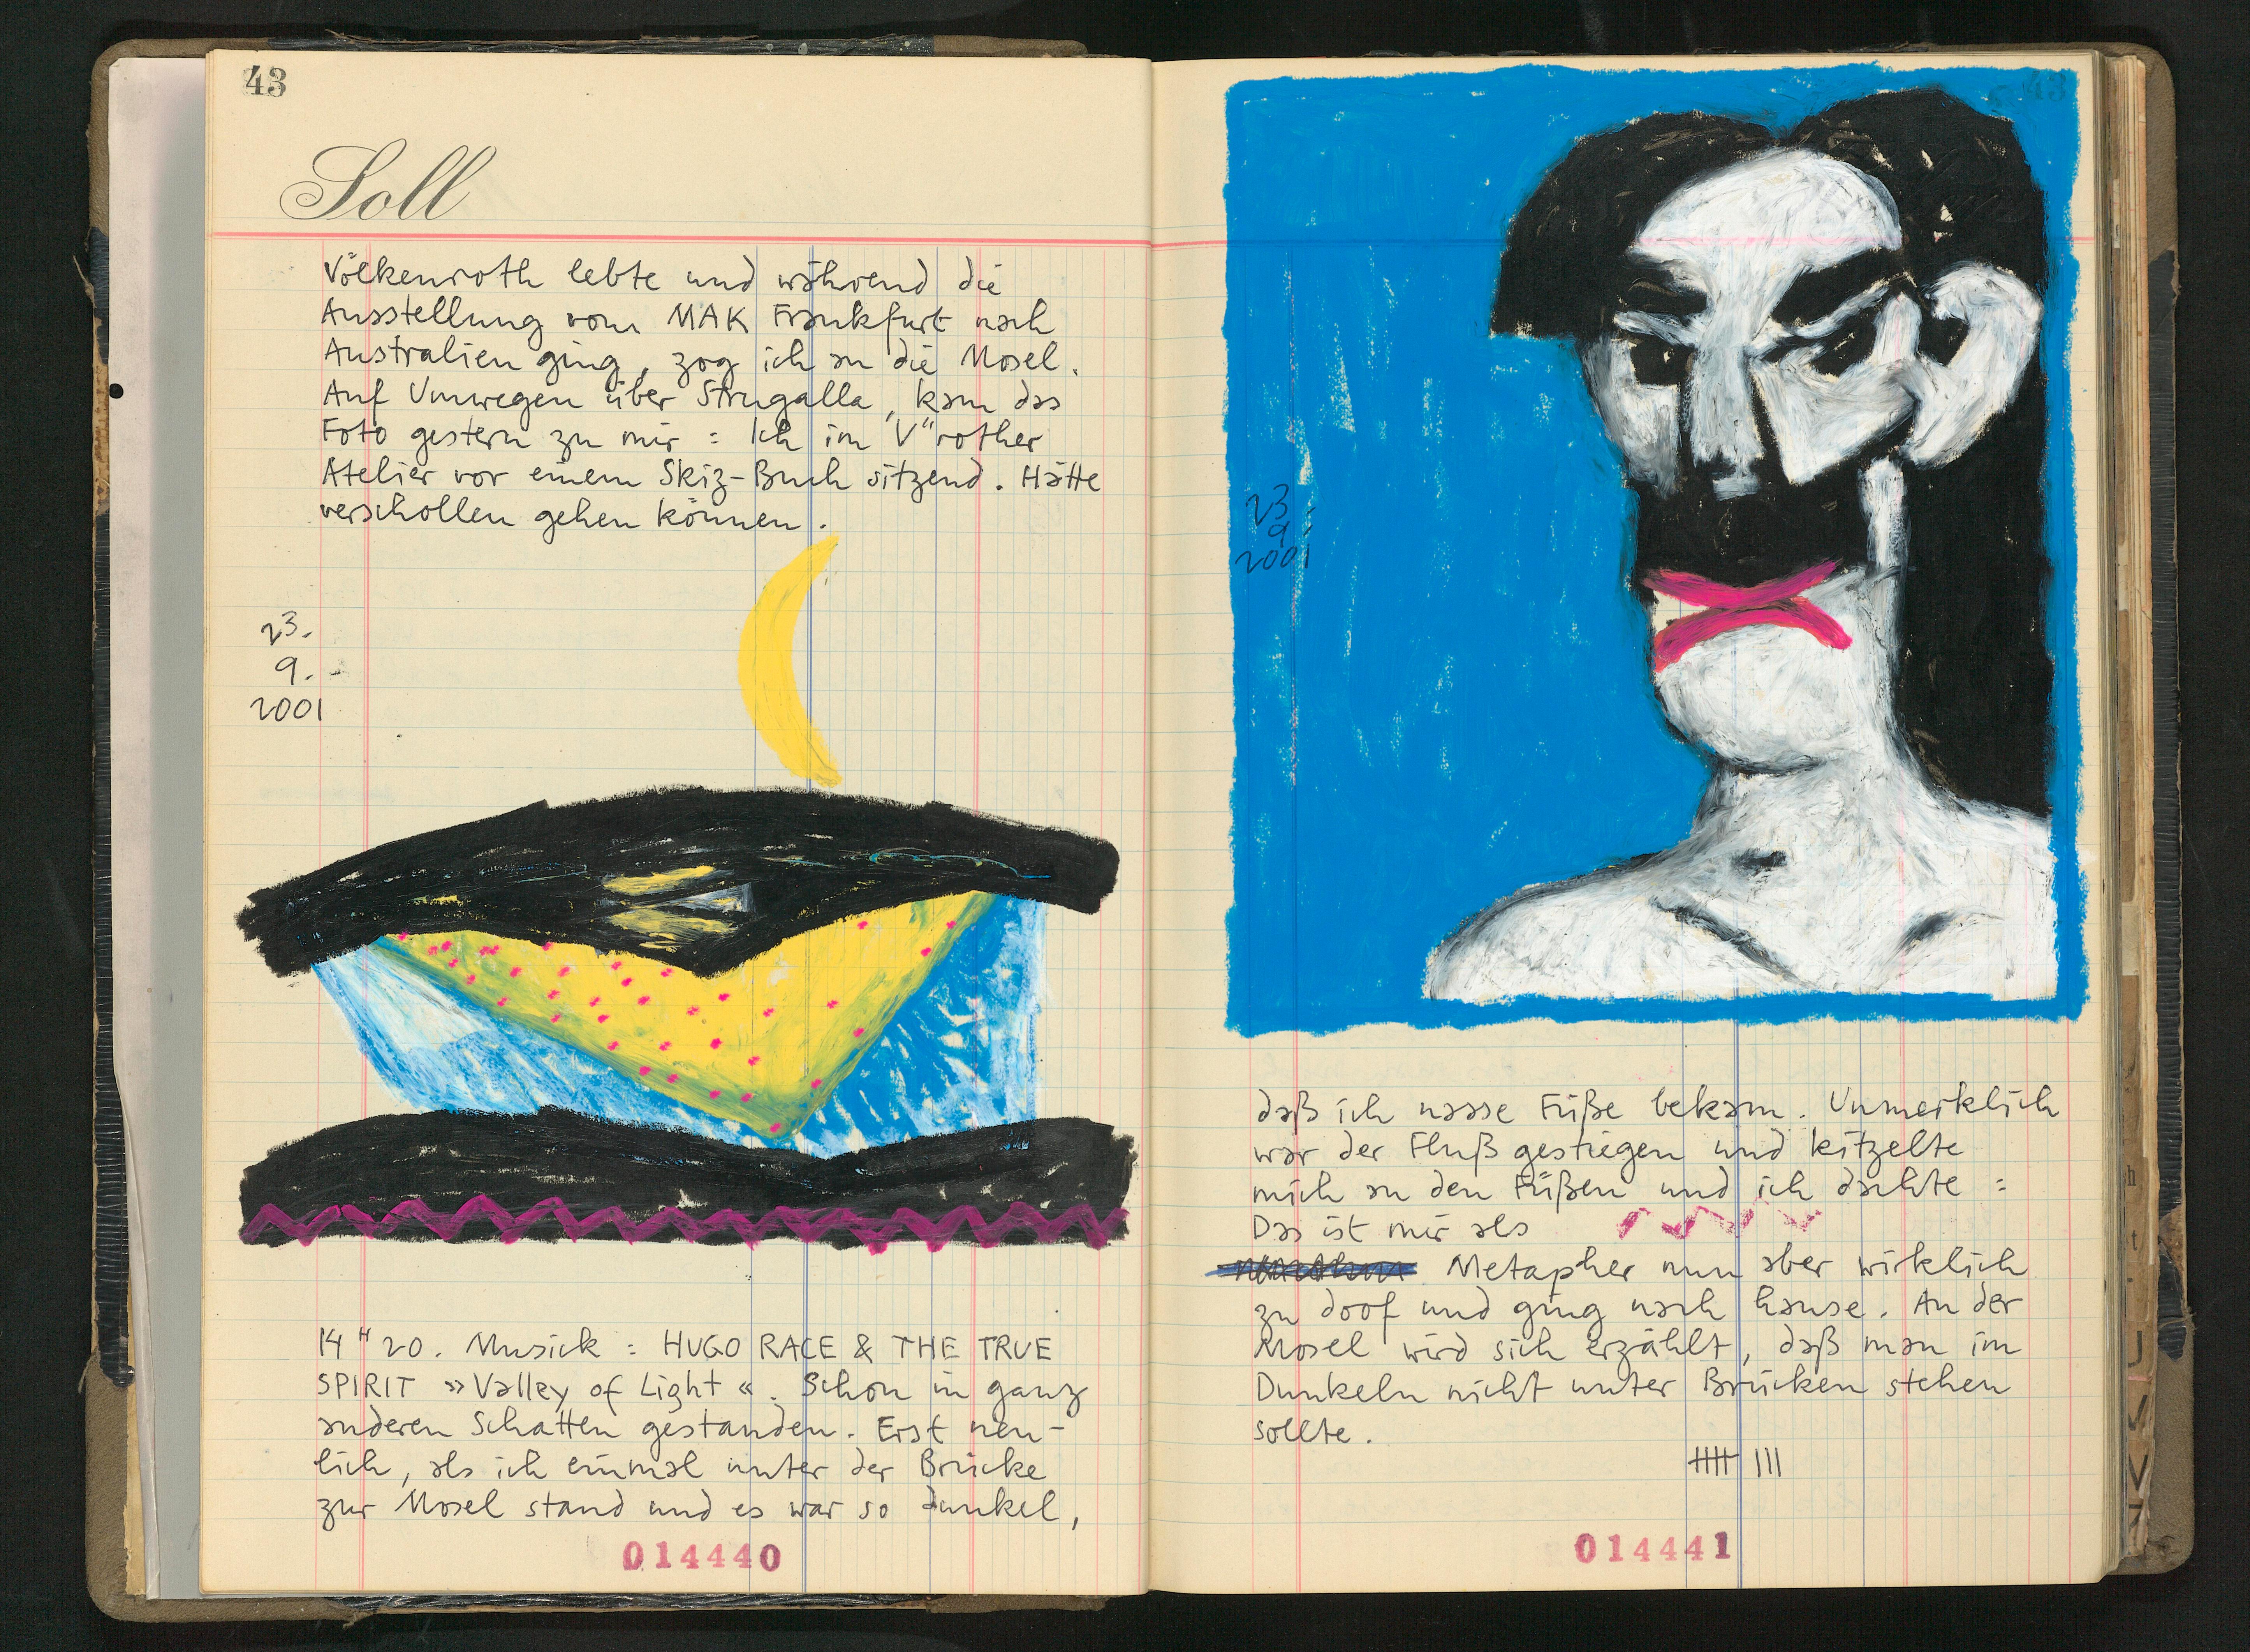 43
Soll
Völkenroth lebte und während die
Ausstellung vom MAK Frankfurt nach
Australien ging, zog ich an die Mosel.
Auf Umwegen über Strugalla, kam das
Foto gestern zu mir : Ich im V"rother
Atelier vor einem Skiz-Buch sitzend. Hätte
verschollen gehen können.
23.
9.
2001
14"20. Musick : HUGO RACE & THE TRUE
SPIRIT »Valley of Light«. Schon in ganz
anderen Schatten gestanden. Erst neu-
lich, als ich einmal unter der Brücke
zur Mosel stand und es war so dunkel,
014440
43
23.
9.
2001
daß ich nasse Füße bekam. Unmerklich
war der Fluß gestiegen und kitzelte
mich an den Füßen und ich dachte :
Das ist mir als
Metapher nun aber wirklich
zu doof und ging nach hause. An der
Mosel wird sich erzählt, daß man im
Dunkeln nicht unter Brücken stehen
sollte.
014441